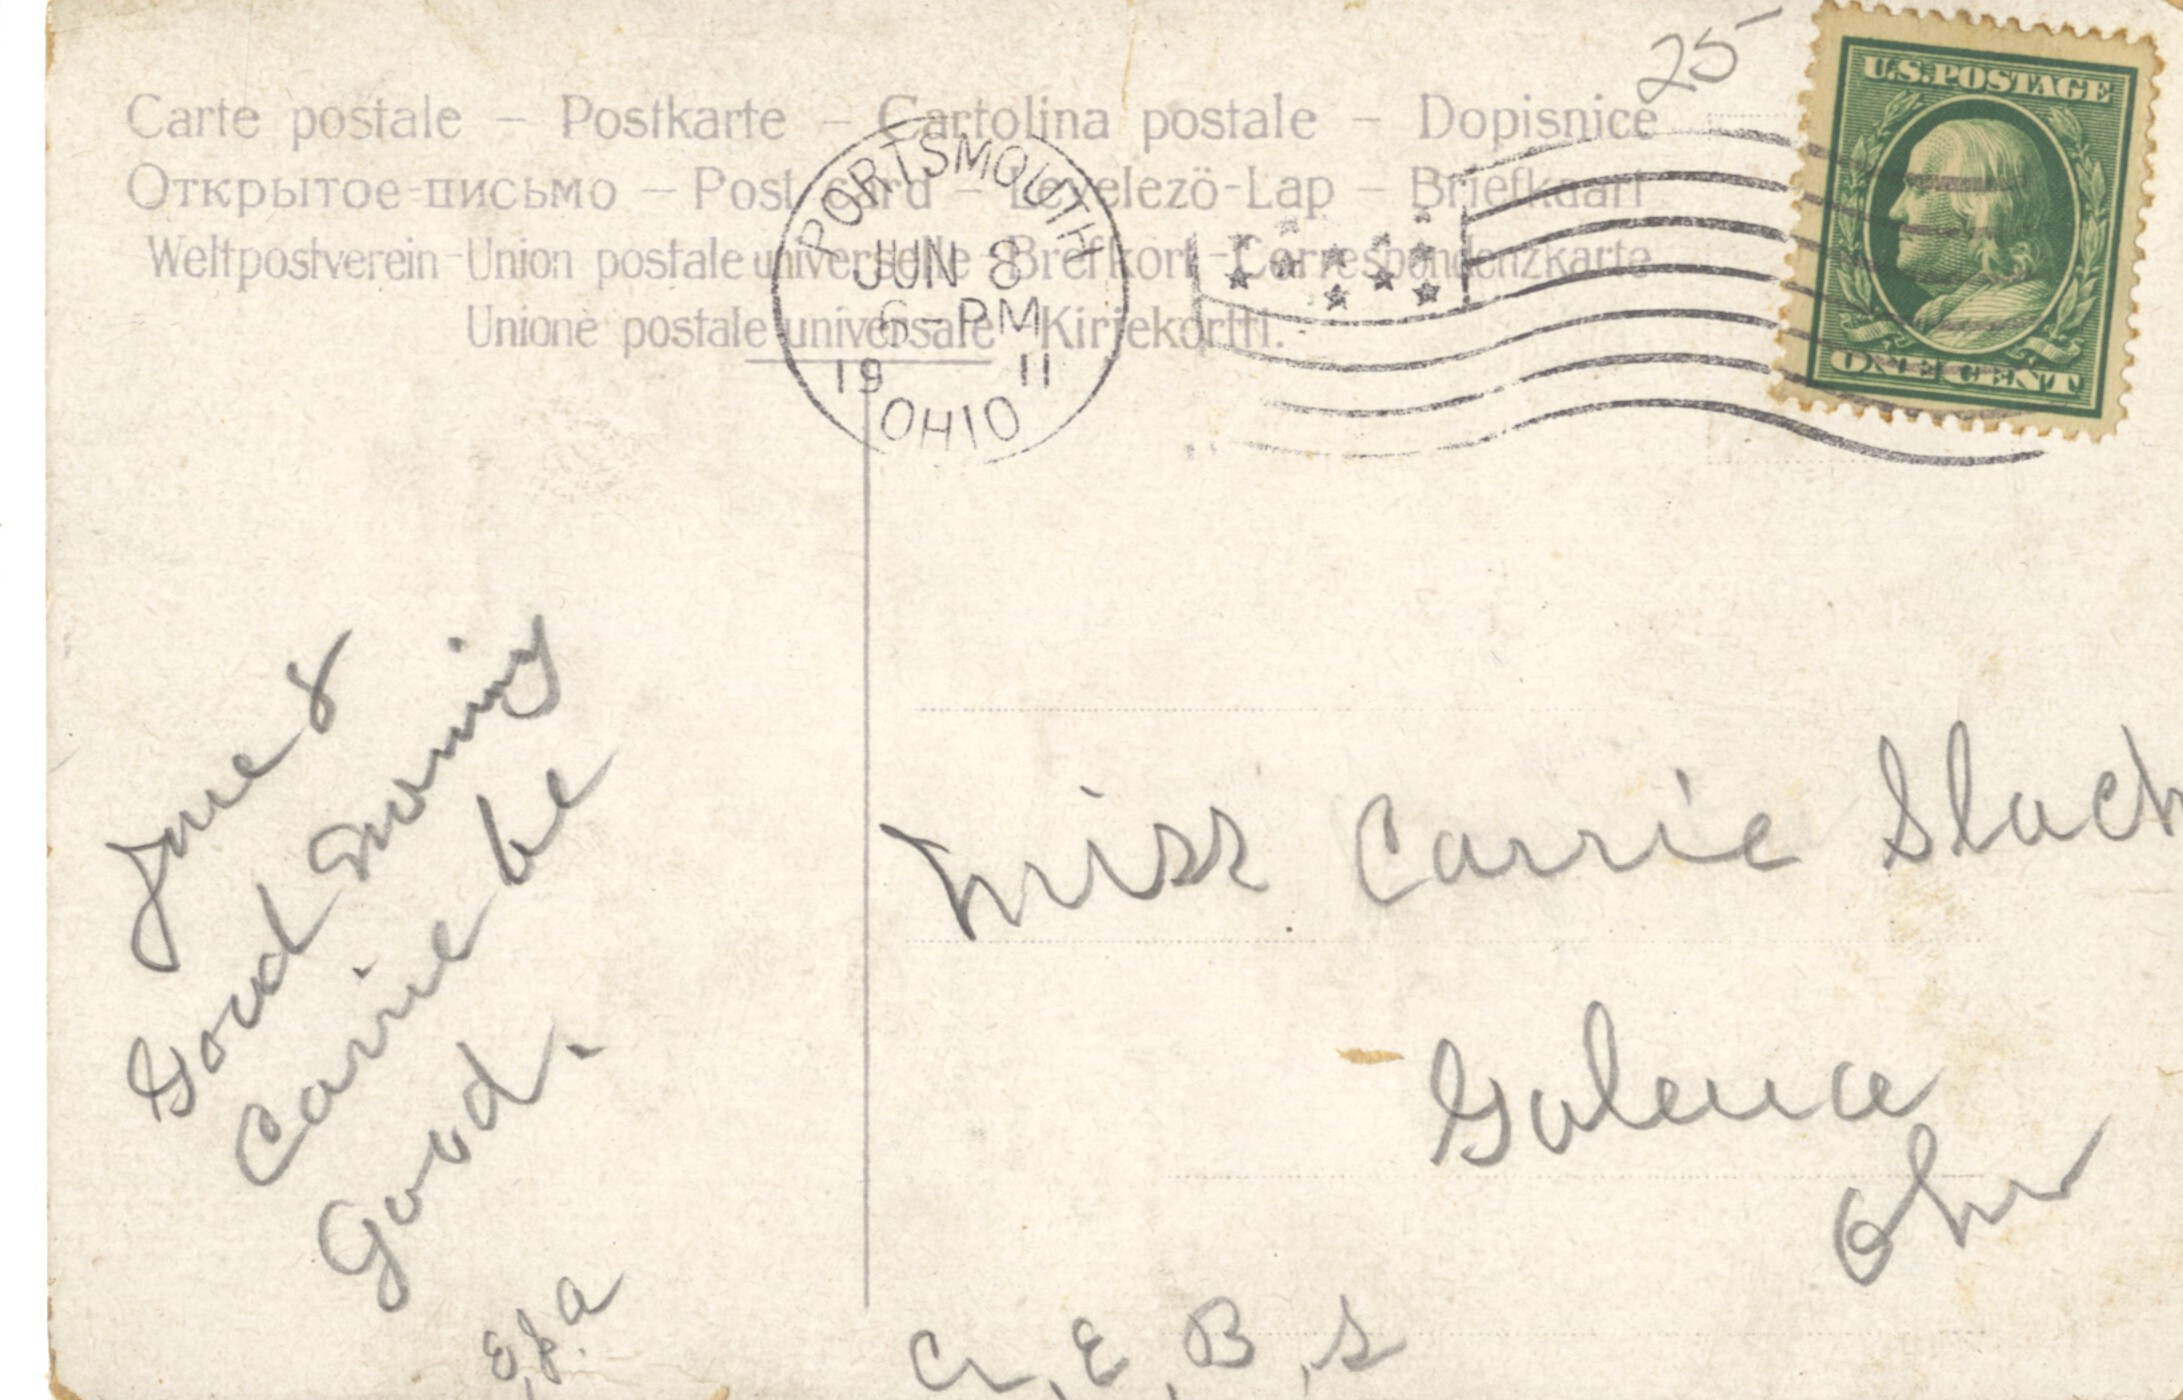 25-
U.S. POSTAGE
ONE CENT
Carte postale – Postkarte – Cartolina postale – Dopisnice
Открытое-письмо – Post card – Levelezö-Lap – Briefkaart
Weltpostverein - Union postale universelle - Brefkort - Correspondenzkarte
Unione postale universale - Kirjekortti.
PORTSMOUTH
JUN 8
6-PM
19 11
OHIO
June 8
Good Morning
Carrie be
Good.
E.J.A
Miss Carrie Slack
Galena
Ohio
C., E, B, S